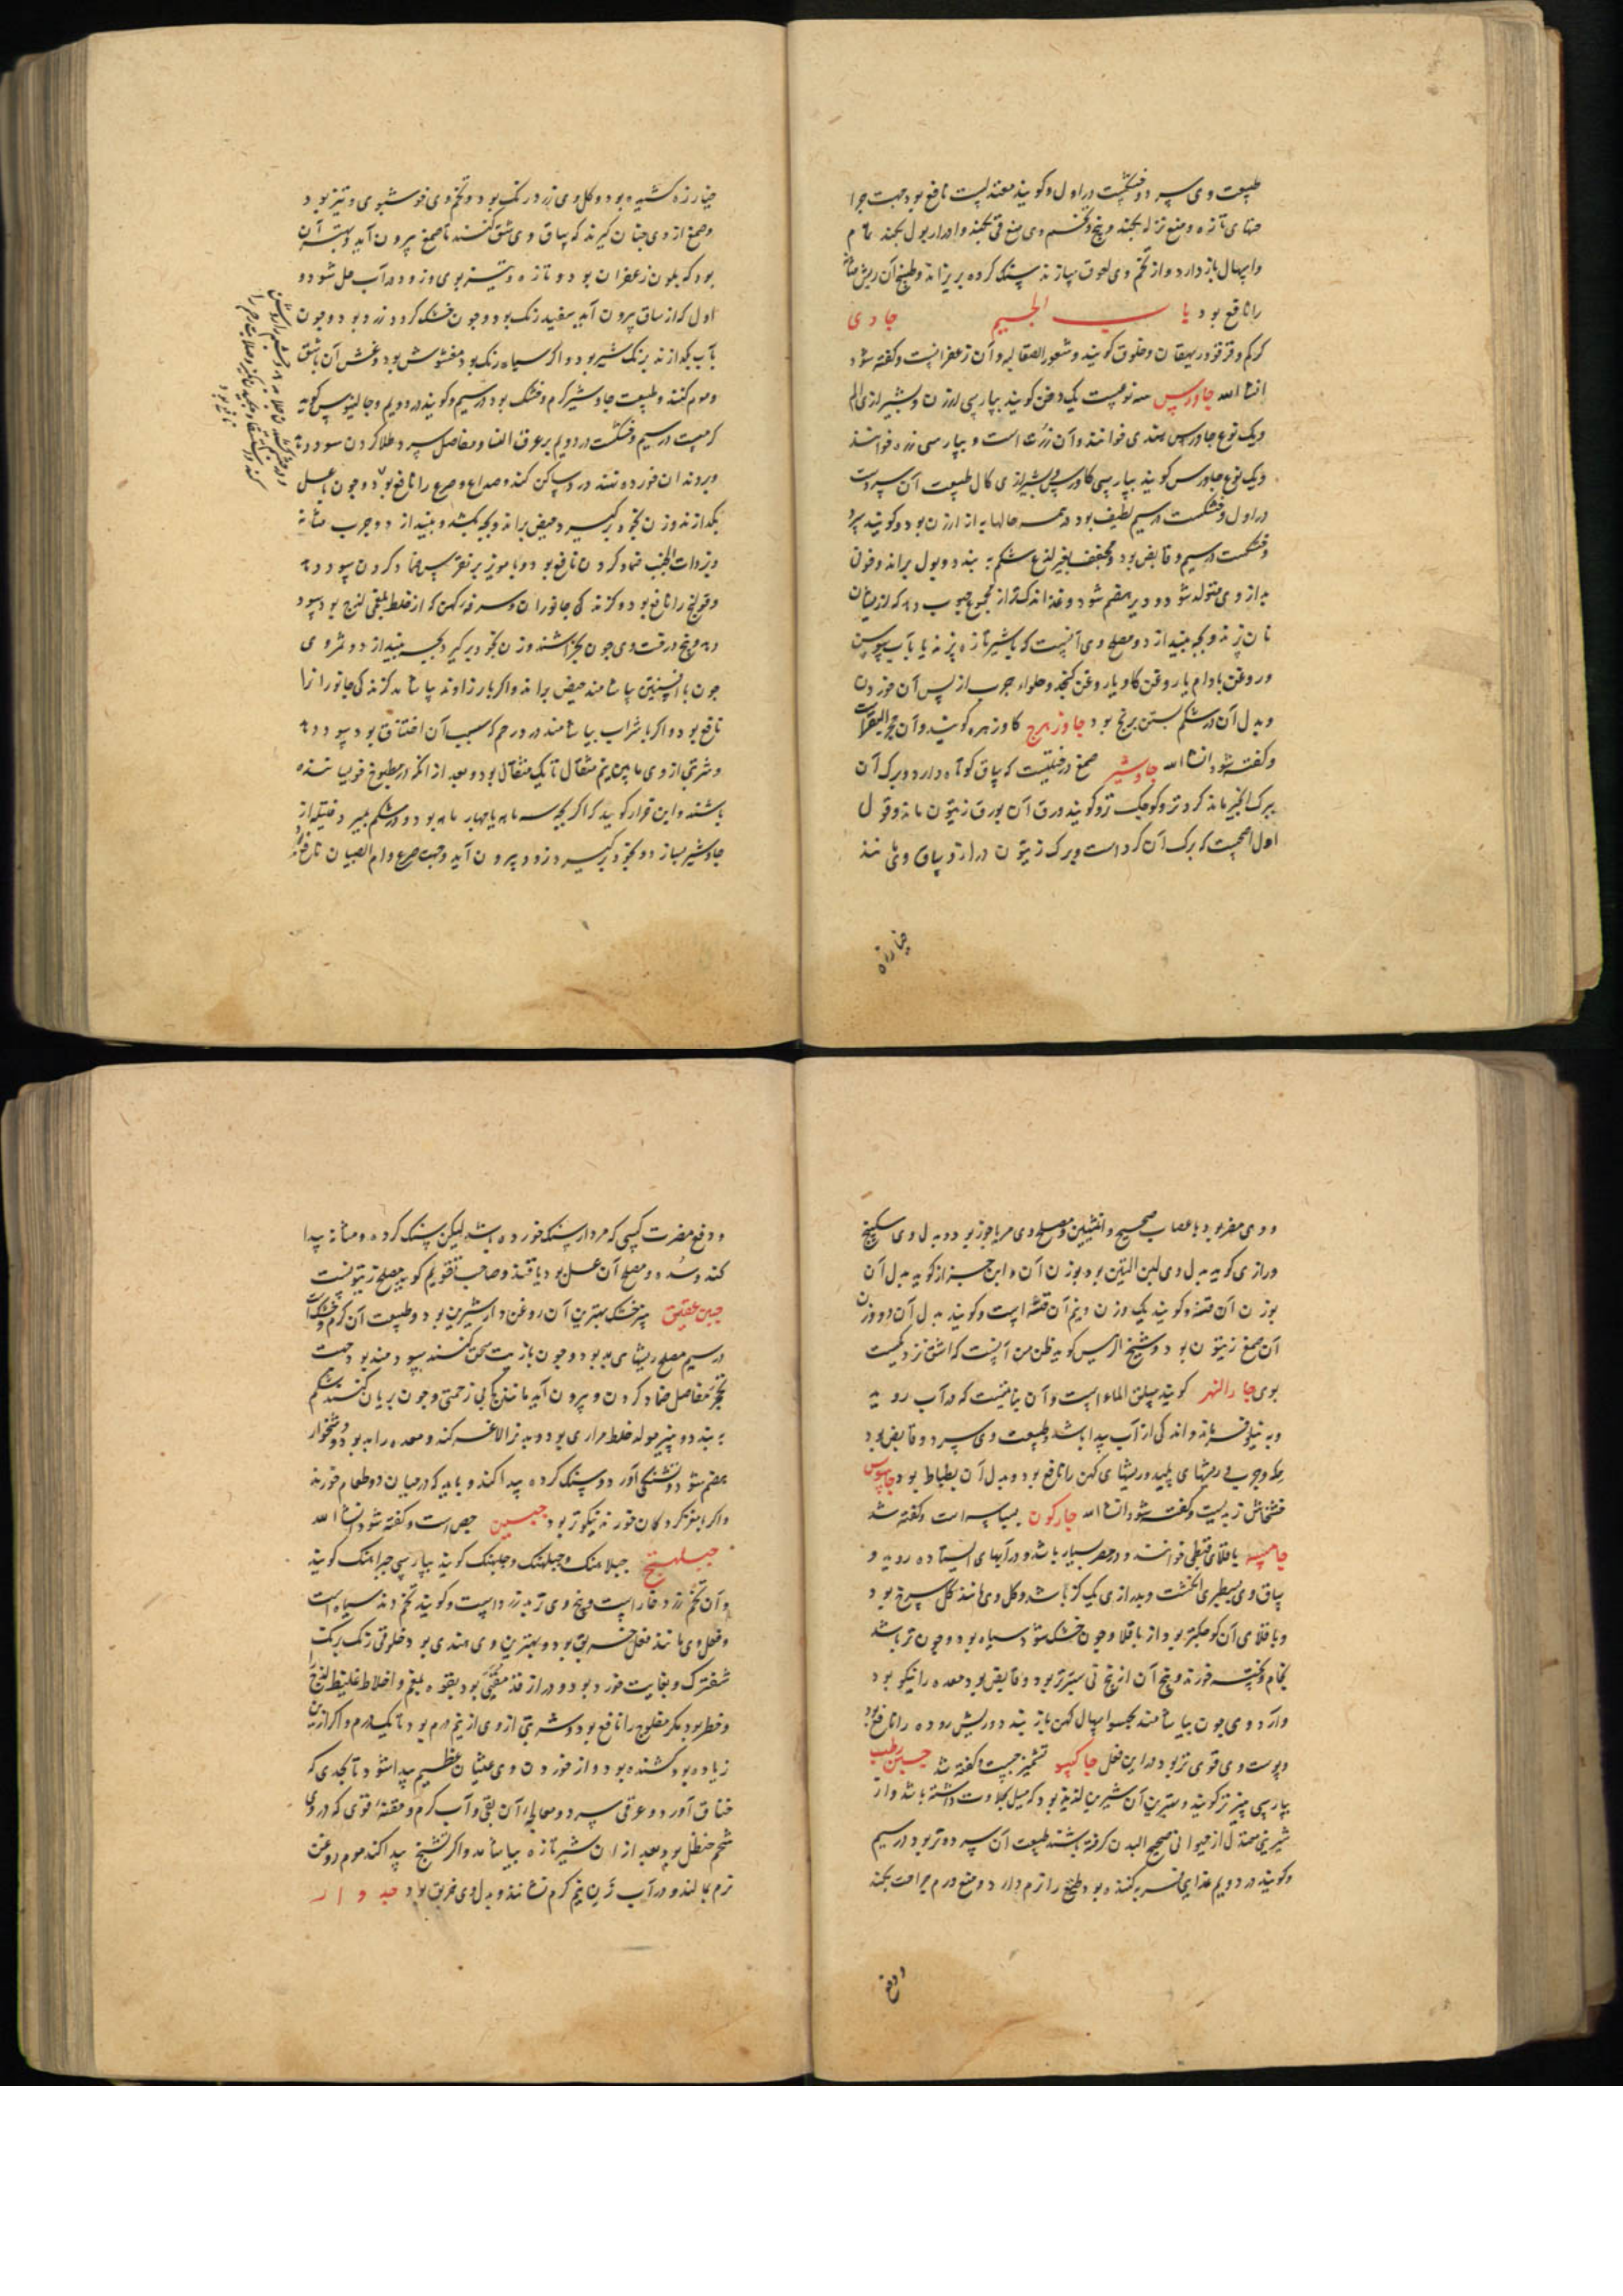 طبیعت وی سرد و خشکست در اول و گویند معتدلست نافع بود جهت جرا
حتهای تازه و منع نزله بکند و بیخ و تخم وی منع قی بکند و ادرار بول بکند تمام
و اسهال باز دارد و از تخم وی لعوق سازند سنک کرده بریزاند و طبیخ آن ریش مثانه
را نافع بود باب الجیم جادی
کرکم و قرقو و ریهقان و خلوق گویند و شعور الصقالبه و آن زعفرانست و گفته شود
انشا الله جاورس سه نوعست یک دخن گویند بپارسی ارزن و بشیرازی الم
و یک نوع جاورس هندی خوانند و آن ذرت است و بپارسی زره خوانند
و یک نوع جاورس گویند بپارسی کاورس و بشیرازی کال طبیعت آن سردست
در اول و خشکست در سیم لطیف بود در همه حالها به از ارزن بود و گویند سرد
و خشکست در سیم و قابض بود و مجفف بغیر لذع شکم به بندد و بول براند و خون
بد از وی متولد شود و دیر هضم شود و غذا اندکتر از مجموع حبوب دهد که از ایشان
نان پزند و بچه بیندازد و مصلح وی آنست که با شیر تازه پزند یا بآب سبوس
و روغن بادام یا روغن کاو یا روغن کنجد و حلواء چرب از پس آن خوردن
و بدل آن در شکم بستن برنج بود جاوزهرج کاوزهره گویند و آن حجر البقر است
و گفته شود انشا الله جاوشیر صمغ درختیست که ساق کوتاه دارد و برک آن
ببرک انجیر ماند کردتر و کوچک تر و گویند ورق آن بورق زیتون ماند و قول
اول اصحست که برک آن کرد است و برک زیتون دراز و ساق وی مانند
خیارزه
خیارزه کشیده بود و کل وی زرد رنک بود و تخم وی خوشبوی و تیز بود
و صمغ از وی چنان گیرند که ساق وی شق کنند تا صمغ بیرون آید و بهترین آن
بود که بلون زعفران بود و تازه و تیز بوی و زود در آب حل شود و
اول که از ساق بیرون آید سفید رنک بود و چون خشک کردد زرد بود و چون
بآب بکدازند برنک شیر بود و اکر سیاه رنک بود مغشوش بود و غش آن باشق
و موم کنند و طبیعت جاوشیر کرم و خشک بود در سیم و گویند در دویم و جالینوس گوید
کرمست در سیم و خشکست در دویم بر عرق النسا و مفاصل سرد طلا کردن سود دهد
و بر دندان خورده نهند درد ساکن کند و صداع و صرع را نافع بود و چون با عسل
بکدازند و زن بخود برکیرد حیض براند و بچه بکشد و بیندازد و جرب مثانه
و ذات الجنب ضماد کردن نافع بود و با مویز بر نقرس ضماد کردن سود دهد
و قولنج را نافع بود و کزندکی جانوران و سرفه کهن که از خلط بلغمی لزج بود سود
دهد و بیخ درخت وی چون بخراشند و زن بخود برکیرد بچه بیندازد و ثمر وی
چون با افسنتین بیاشامند حیض براند و اکر با زراوند بیاشامند کزندکی جانوران را
نافع بود و اکر با شراب بیاشامند درد رحم که سبب آن اختناق بود سود دهد
و شربتی از وی ما بین نیم مثقال تا یک مثقال بود و بعد از آنکه در مطبوخ خویسانیده
باشند و ابن قرار گوید که اکر بچه سه ماهه یا چهار ماهه بود و در شکم بمیرد فتیله از
جاوشیر بسازد و بخود برکیرد زود بیرون آید و جهت صرع و ام الصبیان نافع بود
و وی مضر بود باعصاب صحیح و انثیین و مصلح وی مربا جوز بود و بدل وی سکبینج
و رازی گوید بدل وی لبن التین بود بوزن آن و ابن جزار گوید بدل آن
بوزن آن قنه و گویند یک وزن و نیم آن قنه است و گویند بدل آن دو وزن
آن صمغ زیتون بود و شیخ الرییس گوید ظن من آنست که اشق نزدیکست
بوی جار النهر گویند سلق الماء است و آن نباتیست که در آب روید
و به نیلوفر ماند و اندکی از آب پیدا باشد و طبیعت وی سرد و قابض بود
حکه و جرب و ریشهای پلید و ریشهای کهن را نافع بود و بدل آن بطباط بود جابوس
خشخاش زبدیست و گفته شود انشا الله جارکون بسباسه است و گفته شد
جامسه باقلای قبطی خوانند و در مصر بسیار باشد و در آبهای ایستاده روید و
ساق وی بسطبری انکشت و بدرازی یک کز باشد و کل وی مانند کل سرخ بود
و باقلای آن کوچکتر بود از باقلا و چون خشک شود سیاه بود و چون تر باشد
بخام و پخته خورند و بیخ آن از بیخ نی سترتر بود و قابض بود معده را نیکو بود
و آرد وی چون بیاشامند بجهت اسهال کهن باز بندد و ریش روده را نافع بود
و پوست وی قوی تر بود در این فعل جاکسو تشمیزجست و گفته شد جبن رطب
بپارسی پنیر تر گویند و بهترین آن شیرین لذیذ بود که میل بحلاوت داشته باشد و از
شیرینی معتدل از حیوانی صحیح البدن گرفته باشند طبیعت آن سرد و تر بود در سیم
و گویند در دویم غذایی فربه کننده بود و طبع را نرم دارد و منع ورم جراحت بکند
و دفع
و دفع مضرت کسی که مردار سنک خورده باشد لیکن سنک کرده و مثانه پیدا
کند و سده و مصلح آن عسل بود یا قند و صاحب تقویم گوید مصلح زیتونست
جبن عتیق پنیر خشک بهترین آن روغن دار شیرین بود و طبیعت آن کرم و خشکست
در سیم مصلح ریشهای بد بود و چون با زیت سحق کنند سودمند بود جهت
تحجر مفاصل ضماد کردن و بیرون آید مانند کجی بی زحمتی و چون بریان کنند شکم
به بندد و پنیر مولد خلط مراری بود و بدنرا لاغر کند و معده را بد بود و دشخوار
هضم شود و تشنکی آورد و سنک کرده پیدا کند و باید که در میان دو طعام خورند
و اکر با مغز کردکان خورند نیکوتر بود جبسین جص است و گفته شود انشا الله
جبلهنج جبلاهنک و جبلهنک و جلهنک گویند بپارسی جبراهنک گویند
و آن تخم زرد خار است و بیخ وی تربد زرد است و گویند تخم دند سیاه است
و فعل وی مانند فعل خربق بود و بهترین وی هندی بود خلوقی رنک برنک
شفترک و بغایت خورد بود و دراز قد مقیی بود بقوه بلغم و اخلاط غلیظ لزج
و خطر بود مکر مفلوج را نافع بود و شربتی از وی از نیم درم بود تا یکدرم و اکر ازین
زیاده بود کشنده بود و از خوردن وی غثیان عظیم پیدا شود تا بحدی که
خناق آورد و عرقی سرد و معالجه آن بقی و آب کرم و حقنه قوی که در وی
شحم حنظل بود بعد از ان شیر تازه بیاشامد و اکر تشنج پیدا کند موم روغن
نرم بمالند و در آب زن نیم کرم نشانند و بدل وی خربق بود جدوار